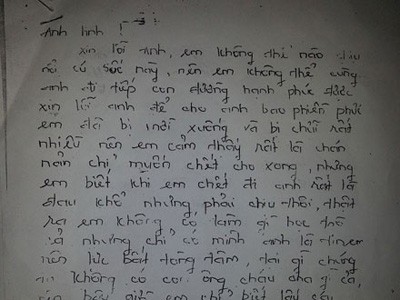 Anh linh !
xin lỗi anh, em không thể nào chịu
nổi cú sốc này, nên em không thể cùng
anh đi tiếp con đường hạnh phúc được
xin lỗi anh để cho anh bao phiền phức
em đã bị xuống và bị chửi rất
nhiều nên em cảm thấy rất là chán
nản chỉ muốn chết cho xong, nhưng
em biết khi em chết đi anh rất là
đau khổ nhưng phải chịu thôi, thật
ra em không có làm gì hoc trò
cả nhưng chỉ có mình anh là
nên lúc tâm, tại gì chúng
nó không có coi ông cháu cha gì cả,
em chỉ biết lấy cái